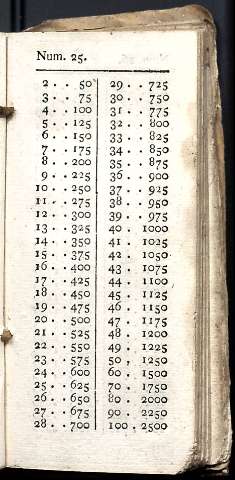 Num. 25.
2 . . 50 29 . . 725
3 . . 75 30 . . 750
4 . . 100 31 . . 775
5 . . 125 32 . . 800
6 . . 150 33 . . 825
7 . . 175 34 . . 850
8 . . 200 35 . . 875
9 . . 225 36 . . 900
10 . . 250 37 . . 925
11 . . 275 38 . . 950
12 . . 300 39 . . 975
13 . . 325 40 . 1000
14 . . 350 41 . 1025
15 . . 375 42 . 1050
16 . . 400 43 . 1075
17 . . 425 44 . 1100
18 . . 450 45 . 1125
19 . . 475 46 . 1150
20 . . 500 47 . 1175
21 . . 525 48 . 1200
22 . . 550 49 . 1225
23 . . 575 50 . 1250
24 . . 600 60 . 1500
25 . . 625 70 . 1750
26 . . 650 80 . 2000
27 . . 675 90 . 2250
28 . . 700 100 . 2500